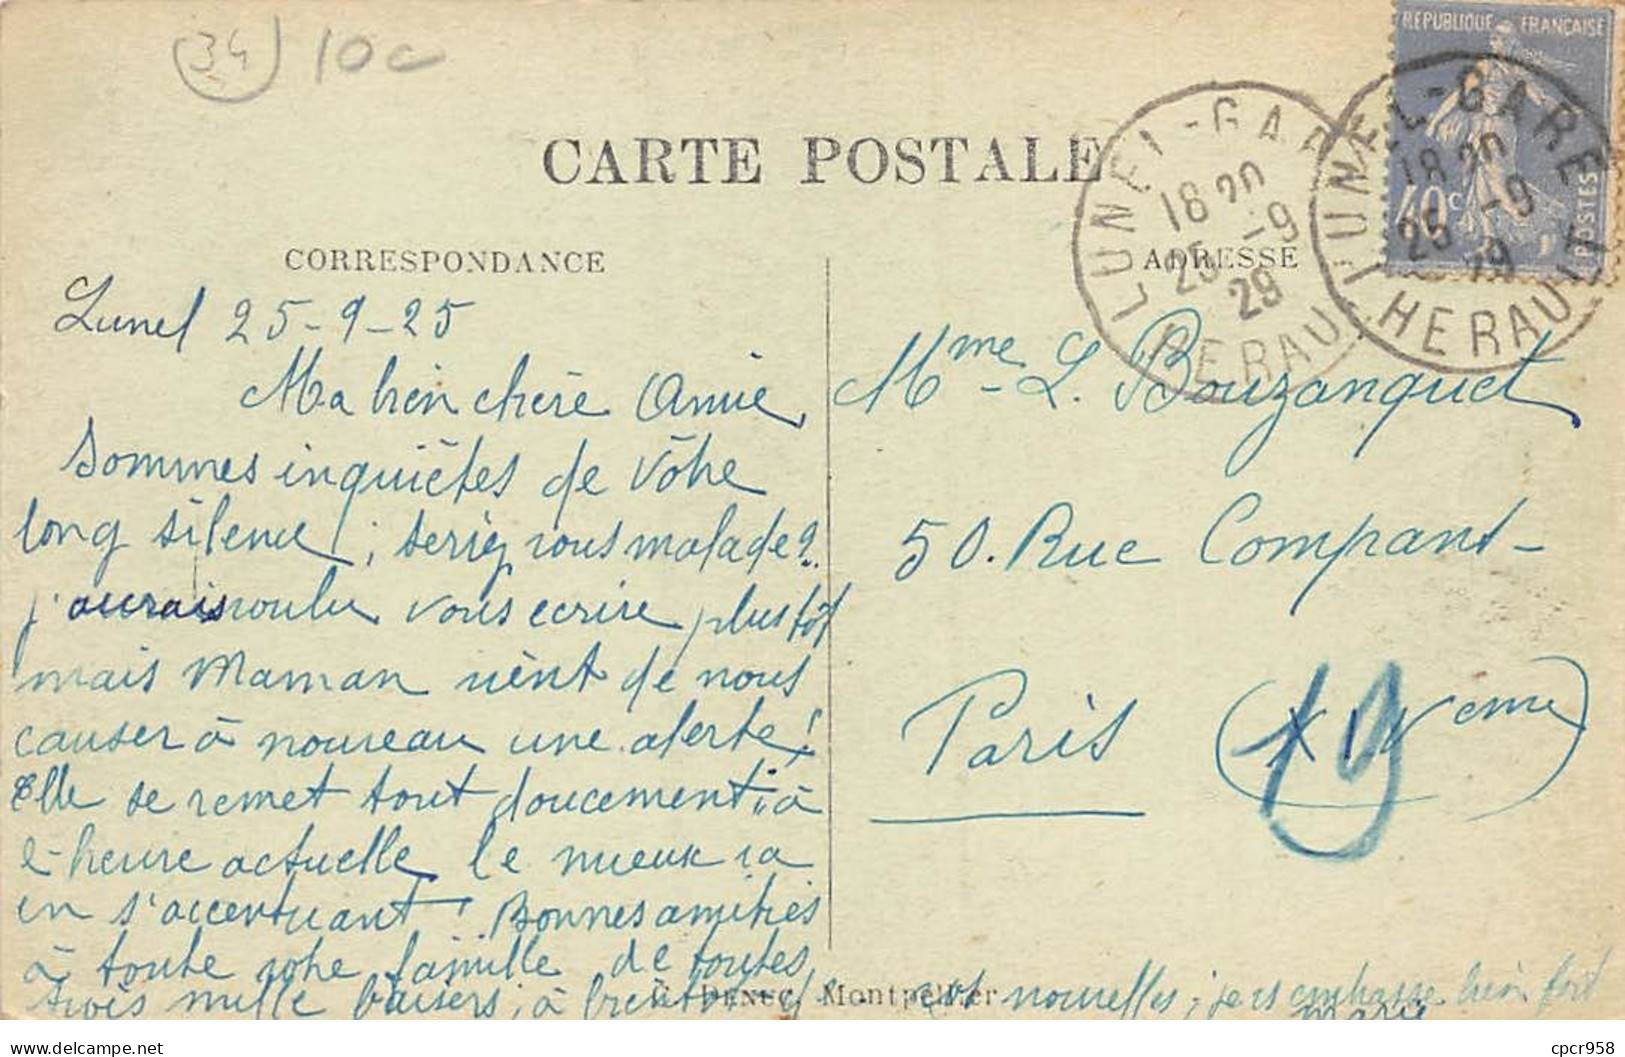 34 10c
CARTE POSTALE
RÉPUBLIQUE FRANÇAISE
40c
POSTES
LUNEL-GARE
18 20
25 -9
29
HERAULT
LUNEL-GARE
18 20
25 -9
29
HERAULT
CORRESPONDANCE
Lunel 25-9-25
Ma bien chère Amie,
Sommes inquiètes de vôtre
long silence, seriez vous malade?
j'aurais voulu vous ecrire plus tôt
mais Maman vient de nous
causer à nouveau une alerte!
Elle se remet tout doucement, à
l'heure actuelle le mieux va
en s'accentuant! Bonnes amitiés
à toute votre famille de toutes
trois mille baisers, à bientôt nouvelles; je vs embrasse bien fort
Marie
ADRESSE
Mme L. Bouzanquet
50. Rue Compans
Paris (XIXeme)
19
Montpellier
delcampe.net
cpcr958